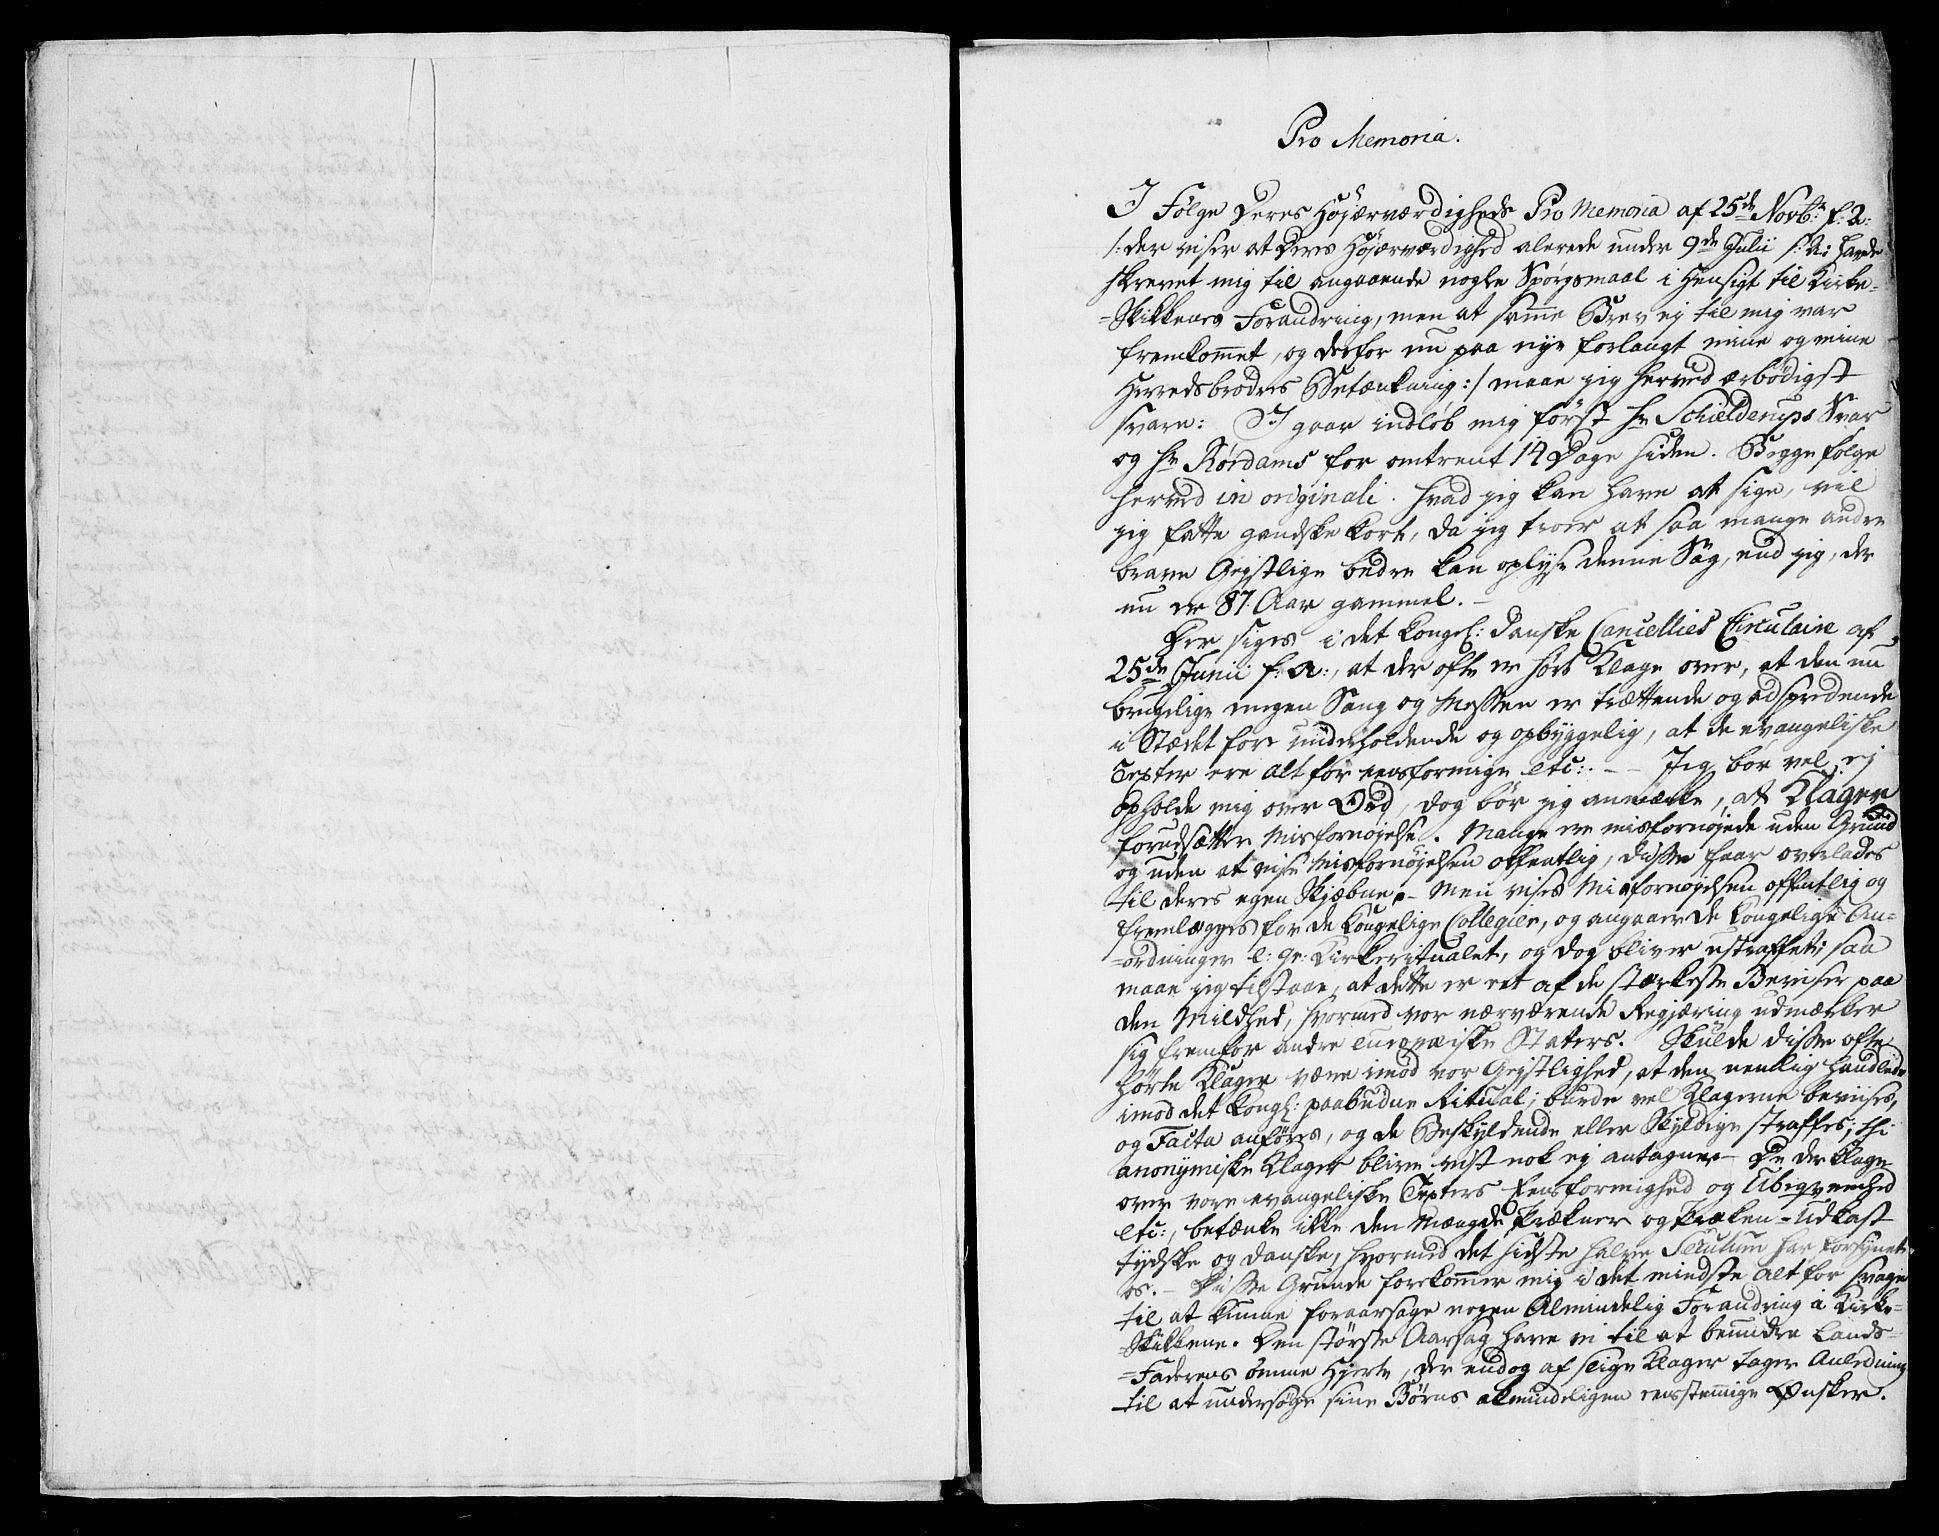 Pro Memoria.
I Følge Deres Höjærværdigheds Pro Memoria af 25de Novbr: f: A:
/: der viser at Deres Höjærværdighed alerede under 9de Julii f: A: havde
skrevet mig til angaaende nogle Spørgsmaal i Hensigt til Kirke-
-Skikkenes Forandring, men at samme Brev ej til mig var
fremkommet, og derfor nu paa nye forlangt mine og mine
Herredsbrødres Betænkning :/ maae jeg herved ærbödigst
svare: I gaar indlöb mig först Hr Schielderups Svar
og Hr Rørdams for omtrent 14 Dage siden. Begge følge
herved in originali. Hvad jeg kan have at sige, vil
jeg fatte gandske kort, da jeg troer at saa mange andre
brave Geistlige bedre kan oplyse denne Sag, end jeg, der
nu er 87 Aar gammel. -
Der siges i det Kongel: danske Cancellies Circulaire af
25de Junii f: A:, at der ofte er hørt Klage over, at den nu
brugelige megen Sang og Messen er trættende og adspredende
i Stædet for underholdende og opbyggelig, at de evangeliske
Texter ere alt for eensformige etc: - - Jeg bör vel ej
opholde mig over Ord, dog bör jeg anmærke, at Klager
forudsætter Misfornøjelse. Mange ere misfornøjede uden Grund
og uden at vise Misfornøjelsen offentlig, disse faar overlades
til deres egen Skjæbne, - Men vises Misfornøjelsen offentlig og
fremlægges for de Kongelige Collegier, og angaaer de Kongelige An-
-ordninger e: gr: Kirkeritualet, og dog bliver ustraffet; saa
maae jeg tilstaae, at dette er eet af de stærkeste Beviser paa
den Mildhed, hvormed vor nærværende Regjæring udmærker
sig fremfor andre europæiske Staters. Skulde disse ofte
hörte Klager være imod vor Geistlighed, at den nemlig handlede
imod det Kongl: paabudne Ritual; burde vel Klagerne bevises,
og Facta anföres, og de Beskyldende eller Skyldige straffes; thi
anonymiske Klager blive vist nok ej antagne - De der klage
over vore evangeliske Texters Eensformighed og Ubeqvemhed
etc:, betænke ikke den Mængde Prækener og Præken-Udkast
tydske og danske, hvormed det sidste halve Seculum har forsynet
os. - Disse Grunde forekommer mig i det mindste alt for svage
til at kunne foraarsage nogen almindelig Forandring i Kirke-
-Skikkene. Den störste Aarsag have vi til at beundre Lands-
-Faderens ömme Hjerte, der endog af slige Klager tager Anledning
til at undersøge sine Børns almindeligen eensstemmige Ønsker.